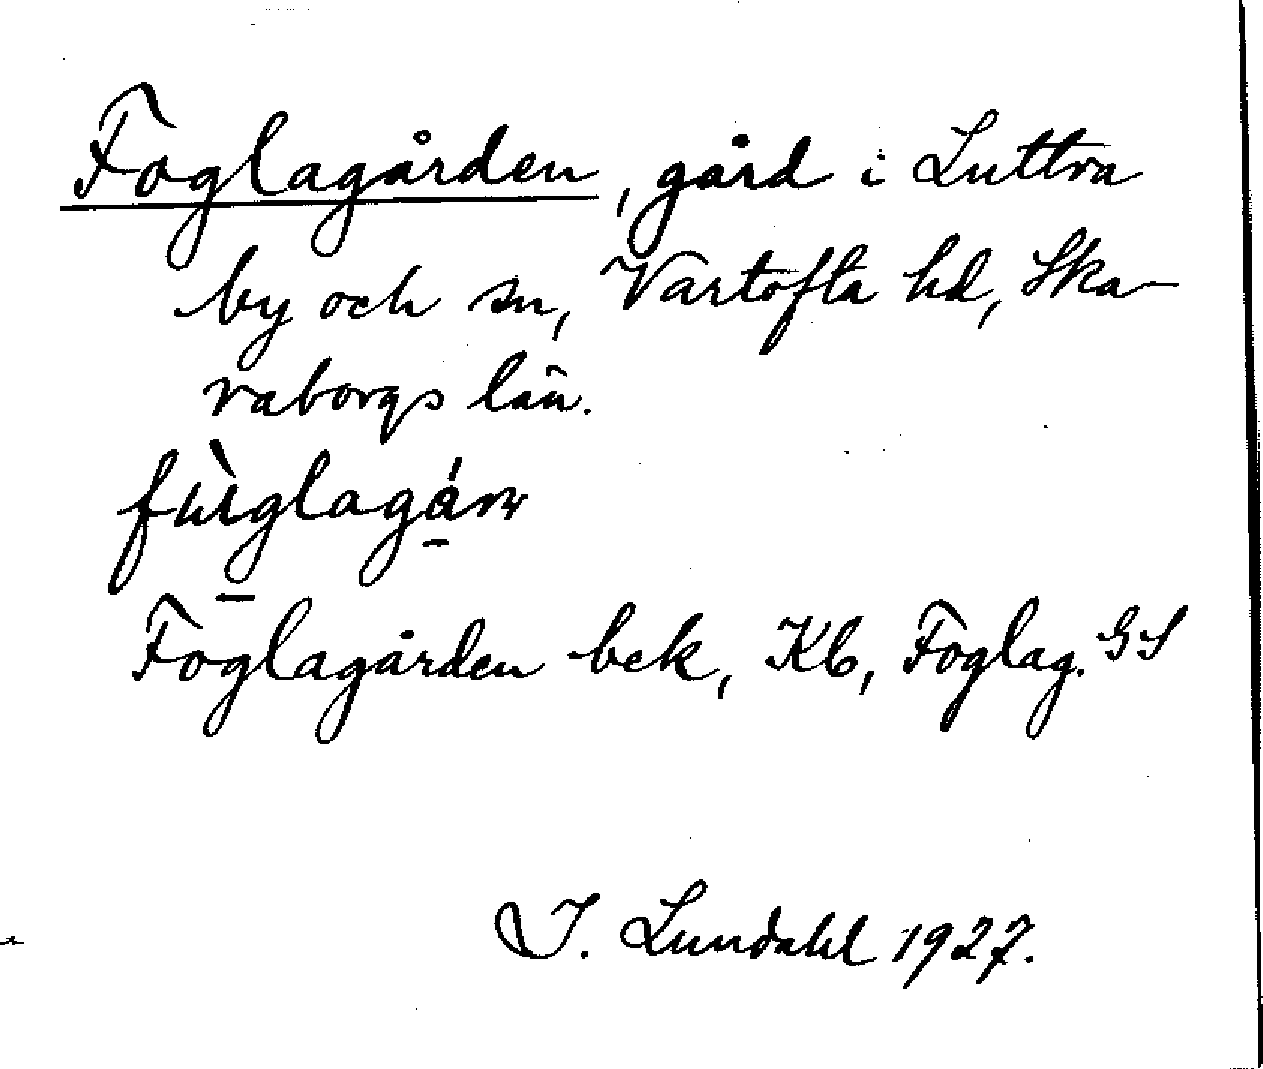 Foglagården, gård i Luttra
by och sn, Vartofta hd, Ska-
raborgs län.
Foglagården bek, Kb, Foglag. GS
I. Lundahl 1927.